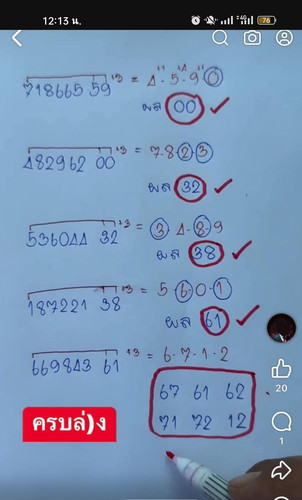 12:13 น.
76
718665 59 +3 = 4-5-9-0
ผล 00 ✓
482962 00 +3 = 7-8-2-3
ผล 32 ✓
536044 32 +3 = 3-4-8-9
ผล 38 ✓
187221 38 +3 = 5-6-0-1
ผล 61 ✓
669843 61 +3 = 6-7-1-2
67 61 62
71 72 12
ครบล่)ง
20
1